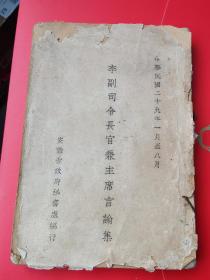 中華民國二十九年一月至八月
李副司令長官兼主席言論集
安徽省政府秘書處編行